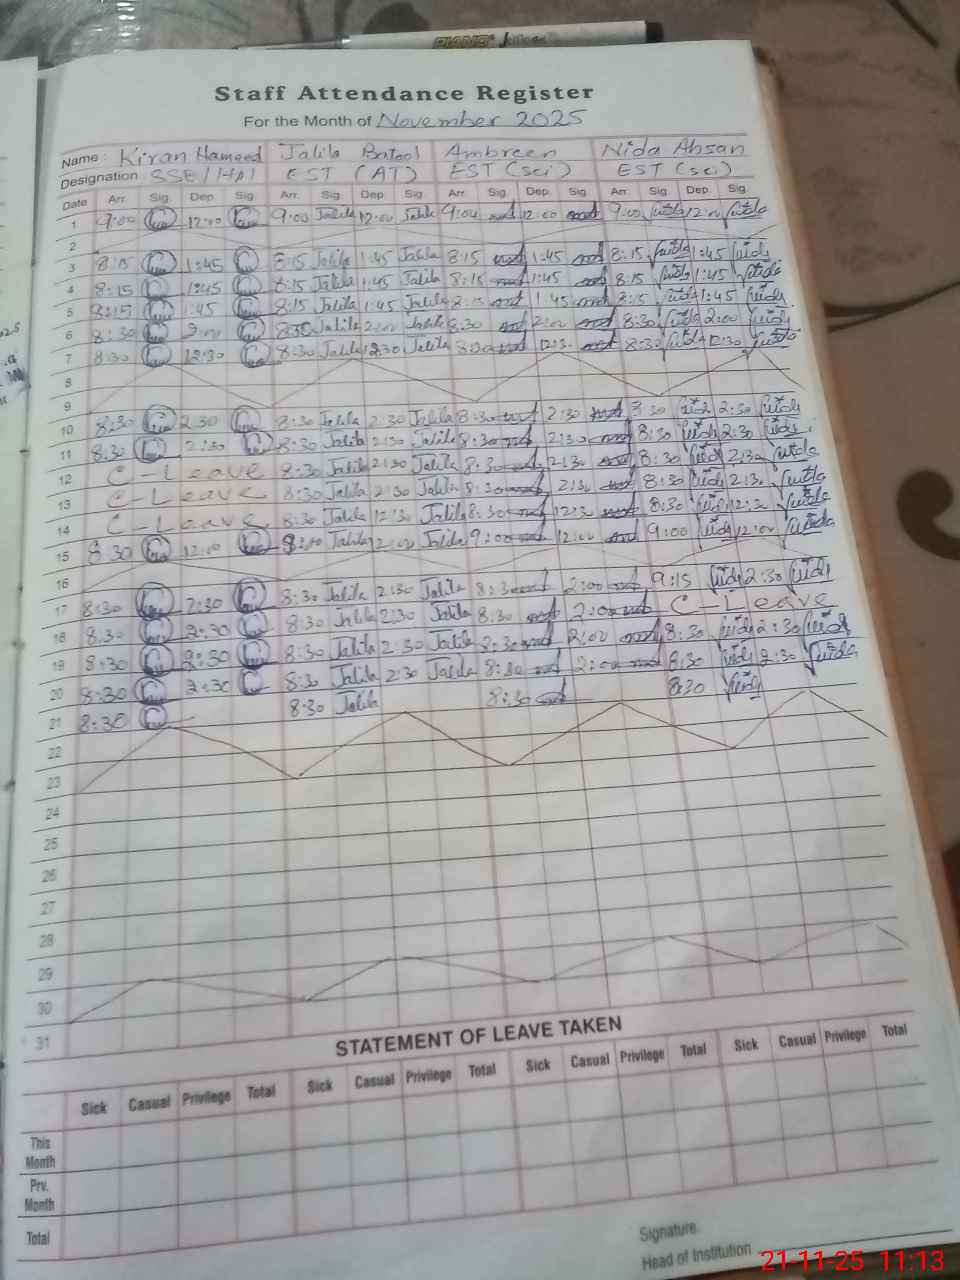 PIANO
Staff Attendance Register
For the Month of November 2025
Name: Kiran Hameed Jalila Batool Ambreen Nida Ahsan
Designation: SSE/HM EST (AT) EST (sci) EST (sci)
Date Arr. Sig. Dep. Sig. Arr. Sig. Dep. Sig. Arr. Sig. Dep. Sig. Arr. Sig. Dep. Sig.
1 9:00 12:00 9:00 Jalila 12:00 Jalila 9:00 12:00 9:00 Nida 12:00 Nida
2
3 8:15 1:45 8:15 Jalila 1:45 Jalila 8:15 1:45 8:15 Nida 1:45 Nida
4 8:15 1:45 8:15 Jalila 1:45 Jalila 8:15 1:45 8:15 Nida 1:45 Nida
5 8:15 1:45 8:15 Jalila 1:45 Jalila 8:15 1:45 8:15 Nida 1:45 Nida
6 8:30 2:00 8:30 Jalila 2:00 Jalila 8:30 2:00 8:30 Nida 2:00 Nida
7 8:30 12:30 8:30 Jalila 12:30 Jalila 8:30 12:30 8:30 Nida 12:30 Nida
8
9
10 8:30 2:30 8:30 Jalila 2:30 Jalila 8:30 2:30 8:30 Nida 2:30 Nida
11 8:30 2:30 8:30 Jalila 2:30 Jalila 8:30 2:30 8:30 Nida 2:30 Nida
12 C-Leave 8:30 Jalila 2:30 Jalila 8:30 2:30 8:30 Nida 2:30 Nida
13 C-Leave 8:30 Jalila 2:30 Jalila 8:30 2:30 8:30 Nida 2:30 Nida
14 C-Leave 8:30 Jalila 12:30 Jalila 8:30 12:30 8:30 Nida 12:30 Nida
15 8:30 12:00 9:00 Jalila 12:00 Jalila 9:00 12:00 9:00 Nida 12:00 Nida
16
17 8:30 2:30 8:30 Jalila 2:30 Jalila 8:30 2:00 9:15 Nida 2:30 Nida
18 8:30 2:30 8:30 Jalila 2:30 Jalila 8:30 2:00 C-Leave
19 8:30 2:30 8:30 Jalila 2:30 Jalila 8:30 2:00 8:30 Nida 2:30 Nida
20 8:30 2:30 8:30 Jalila 2:30 Jalila 8:30 2:00 8:30 Nida 2:30 Nida
21 8:30 8:30 Jalila 8:30 8:30 Nida
22
23
24
25
26
27
28
29
30
31
STATEMENT OF LEAVE TAKEN
Sick Casual Privilege Total Sick Casual Privilege Total Sick Casual Privilege Total Sick Casual Privilege Total
This Month
Prv. Month
Total
Signature.
Head of Institution
21-11-25 11:13